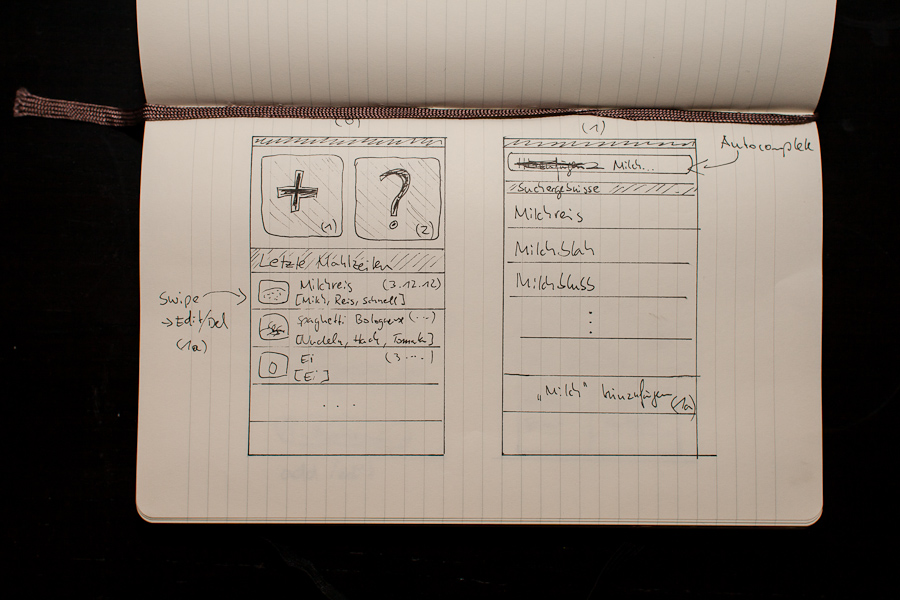 (0)
+
?
(1)
(2)
Letzte Mahlzeiten
Milchreis (3.12.12)
[Milch, Reis, Schnell]
Spaghetti Bolognese (...)
[Nudeln, Hack, Tomate]
Ei (3....)
[Ei]
...
Swipe
→ Edit/Del
(1a)
(1)
Autocomplete
Milch...
Suchergebnisse
Milchreis
Milchblah
Milchbluss
"Milch" hinzufügen
(1a)